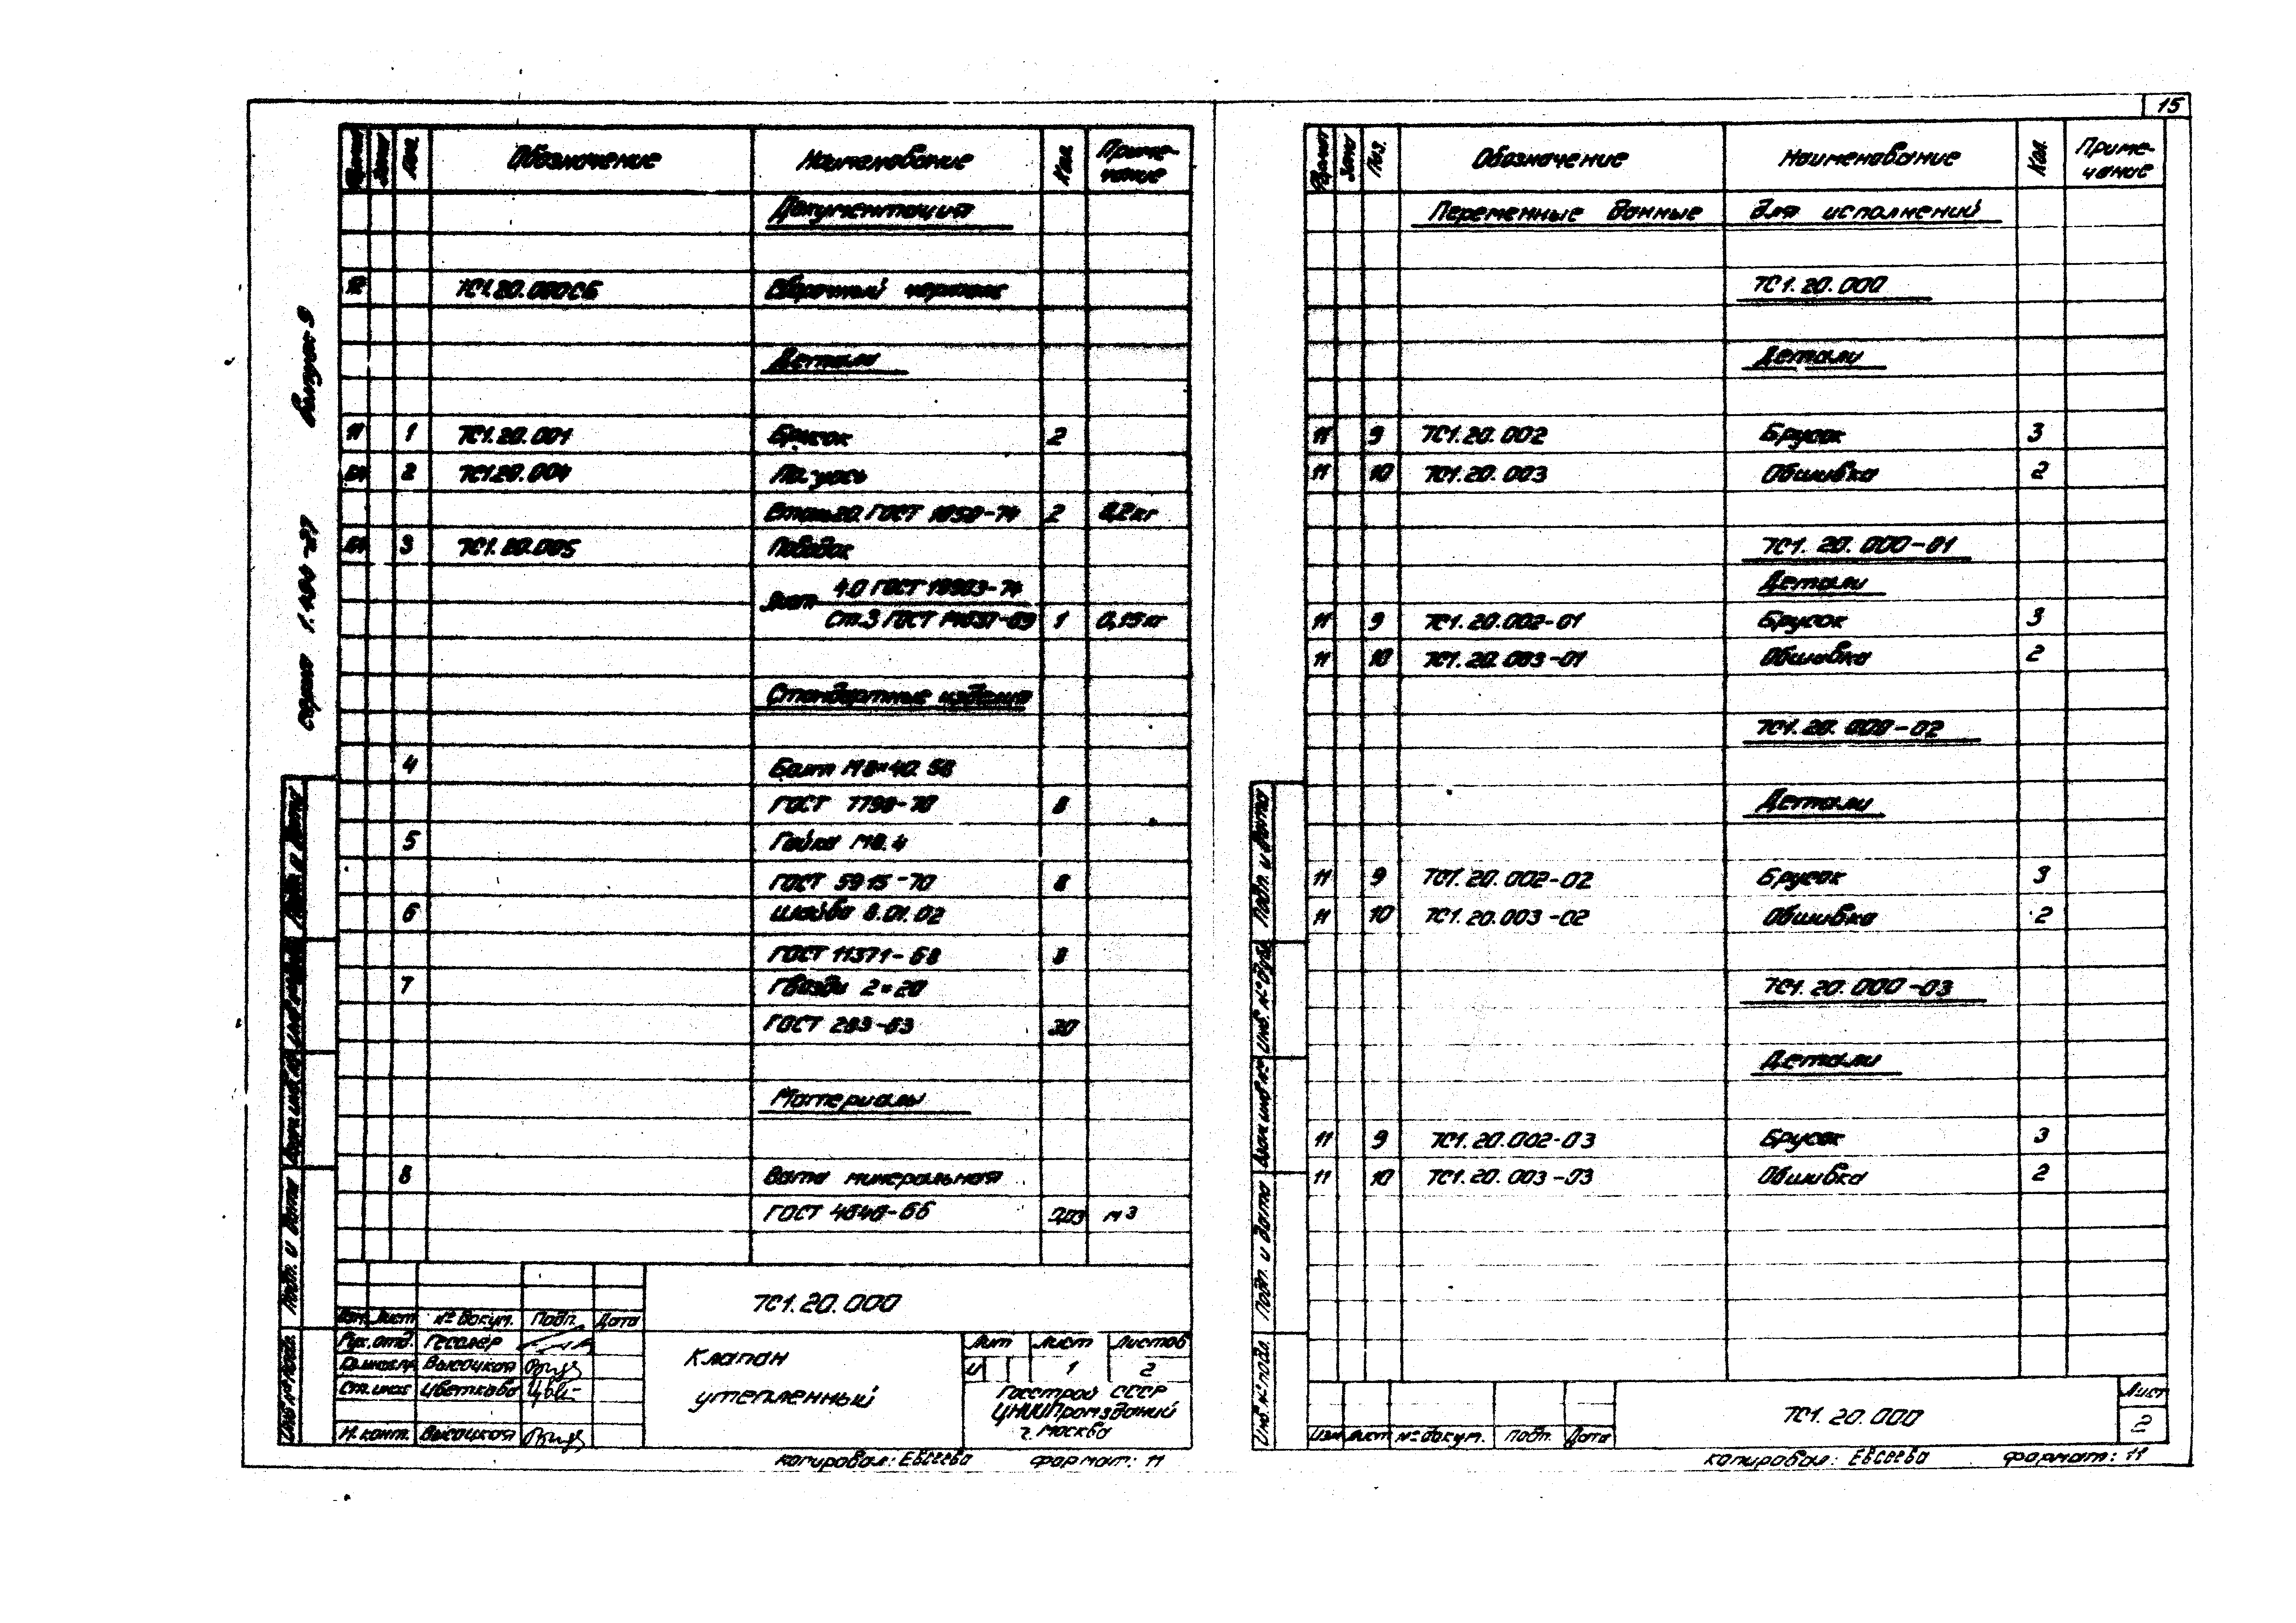 15
Выпуск 9
серия 1.494-27
Формат Зона Поз. Обозначение Наименование Кол. Приме-
чание
Документация
12 7С1.20.000СБ Сборочный чертеж
Детали
11 1 7С1.20.001 Брусок 2
БЧ 2 7С1.20.004 Полуось
Сталь 20 ГОСТ 1050-74 2 0,2кг
БЧ 3 7С1.20.005 Поводок
Лист 4.0 ГОСТ 19903-74
Ст.3 ГОСТ 14637-69 1 0,15кг
Стандартные изделия
4 Болт М8×40.58
ГОСТ 7798-70 8
5 Гайка М8.4
ГОСТ 5915-70 8
6 Шайба 8.01.02
ГОСТ 11371-68 8
7 Гвозди 2×20
ГОСТ 283-63 30
Материалы
8 Вата минеральная
ГОСТ 4640-66 0,03 м3
Подп. и дата
Инв. № подл.
Изм. Лист № докум. Подп. Дата
Рук. отд. Гесслер
Высоцкая
Ст. инж Цветкова
Н. конт. Высоцкая
7С1.20.000
Клапан
утепленный
Лит Лист Листов
И 1 2
Госстрой СССР
ЦНИИПромзданий
г. Москва
копировал: Евсеева формат: 11
Формат Зона Поз. Обозначение Наименование Кол. Приме-
чание
Переменные данные для исполнений
7С1.20.000
Детали
11 9 7С1.20.002 Брусок 3
11 10 7С1.20.003 Обшивка 2
7С1.20.000-01
Детали
11 9 7С1.20.002-01 Брусок 3
11 10 7С1.20.003-01 Обшивка 2
7С1.20.000-02
Детали
11 9 7С1.20.002-02 Брусок 3
11 10 7С1.20.003-02 Обшивка 2
7С1.20.000-03
Детали
11 9 7С1.20.002-03 Брусок 3
11 10 7С1.20.003-03 Обшивка 2
Подп. и дата
Инв. № дубл.
Взам. инв. №
Подп. и дата
Инв. № подл.
Изм Лист № докум. Подп. Дата
7С1.20.000
Лист
2
копировал: Евсеева формат: 11